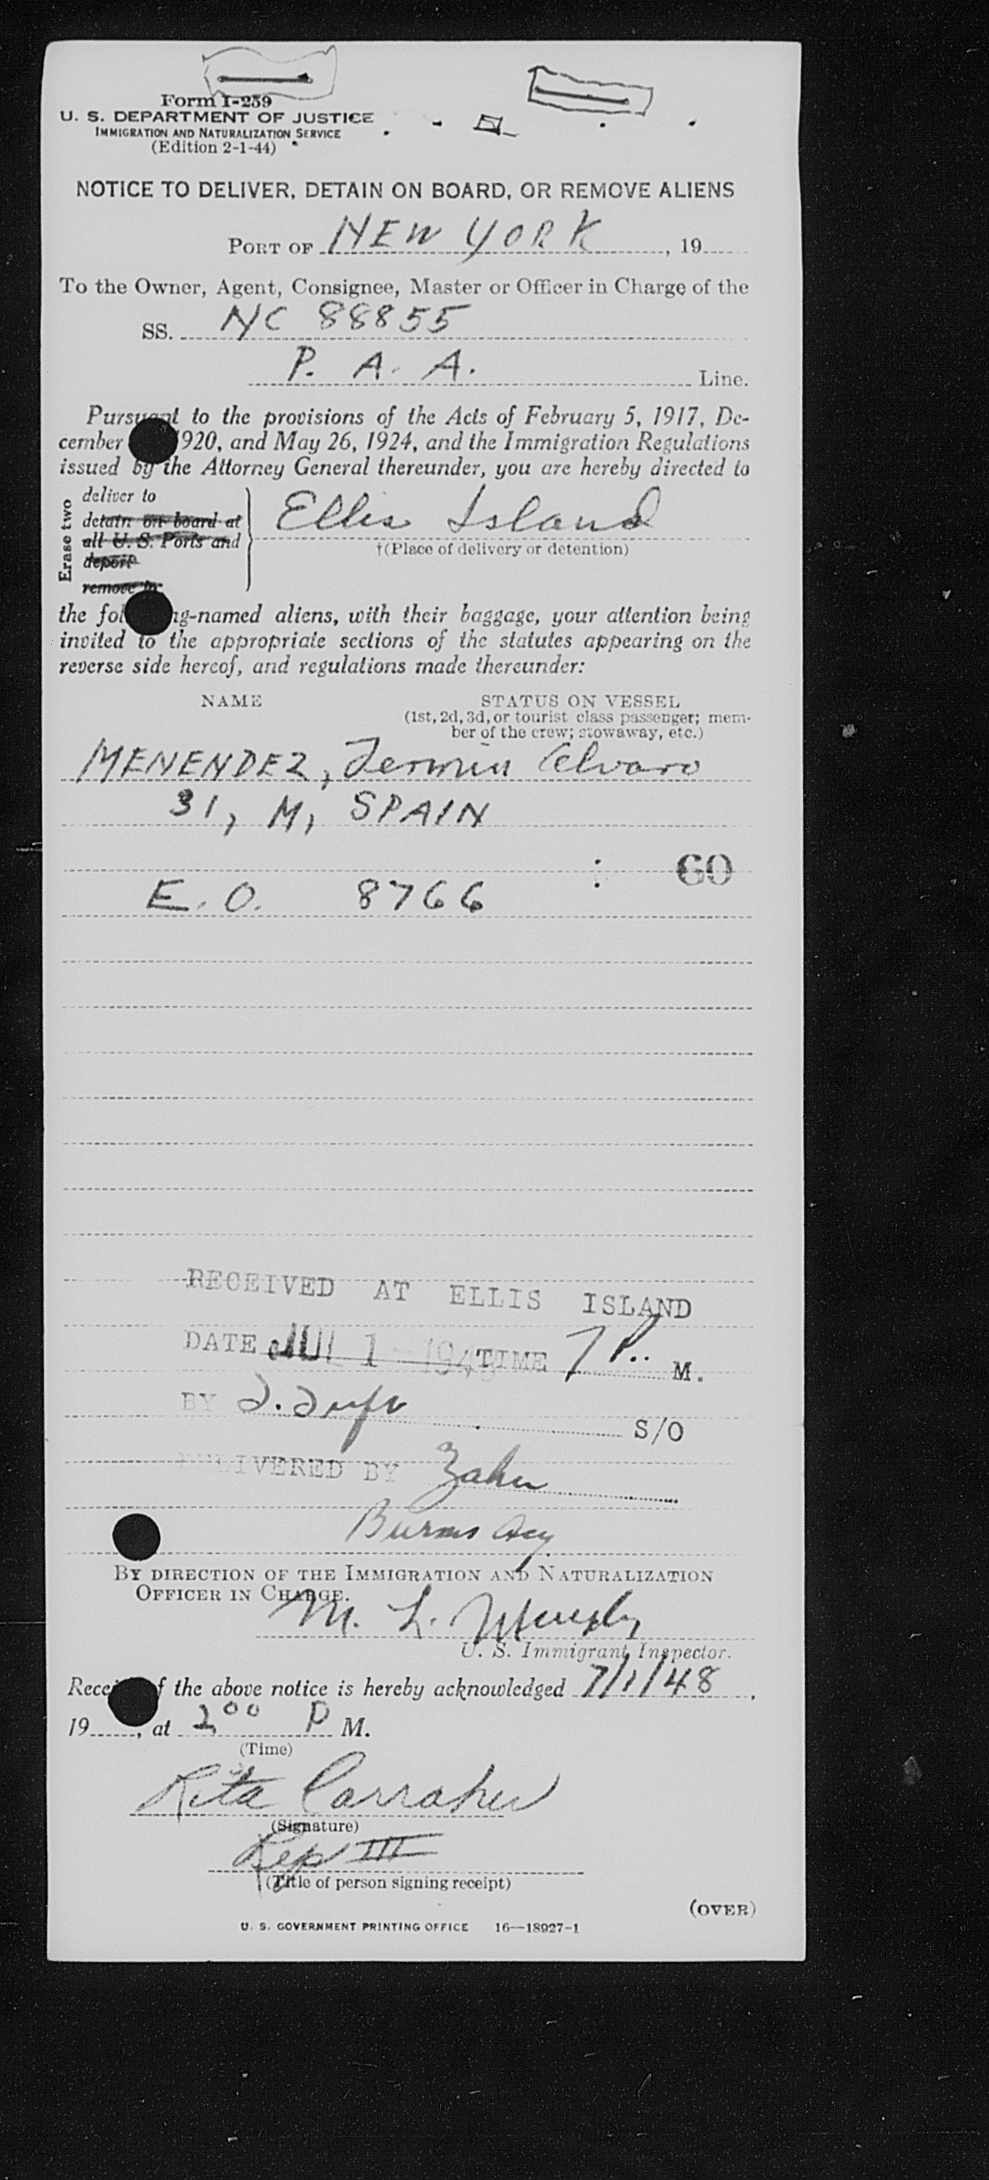 Form I-259
U. S. DEPARTMENT OF JUSTICE
IMMIGRATION AND NATURALIZATION SERVICE
(Edition 2-1-44)
NOTICE TO DELIVER, DETAIN ON BOARD, OR REMOVE ALIENS
PORT OF NEW YORK, 19
To the Owner, Agent, Consignee, Master or Officer in Charge of the
SS. NC 88855
P. A. A. Line.
Pursuant to the provisions of the Acts of February 5, 1917, De-
cember 1920, and May 26, 1924, and the Immigration Regulations
issued by the Attorney General thereunder, you are hereby directed to
Erase two
deliver to
detain on board at
all U. S. Ports and
deport
remove to
Ellis Island
†(Place of delivery or detention)
the following-named aliens, with their baggage, your attention being
invited to the appropriate sections of the statutes appearing on the
reverse side hereof, and regulations made thereunder:
NAME STATUS ON VESSEL
(1st, 2d, 3d, or tourist class passenger; mem-
ber of the crew; stowaway, etc.)
MENENDEZ, Fermin Alvaro
31, M, SPAIN
: 60
E. O. 8766
RECEIVED AT ELLIS ISLAND
DATE JUL 1 - 1948 TIME 7 P.. M.
BY S/O
DELIVERED BY Zahn
Burns Agy.
BY DIRECTION OF THE IMMIGRATION AND NATURALIZATION
OFFICER IN CHARGE.
M. L. Murphy
U. S. Immigrant Inspector.
Receipt of the above notice is hereby acknowledged 7/1/48,
19, at 2 00 P M.
(Time)
Rita Carraher
(Signature)
Rep III
(Title of person signing receipt)
(OVER)
U. S. GOVERNMENT PRINTING OFFICE 16—18927-1